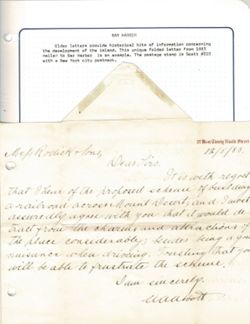 BAR HARBOR
Older letters provide historical bits of information concerning
the development of the island. This unique folded letter from 1883
mailed to Bar Harbor is an example. The postage stamp is Scott
with a New York city postmark.
West Thirty Ninth Street
12/5/83
Messrs Rodick & Sons,
Dear Sirs.
It is with regret
that I hear of the proposed scheme of building
a railroad across Mount Desert, and I most
assuredly agree with you that it would de
tract from the charms and attractions of
the place considerably, besides being a great
nuisance when driving. Trusting that you
will be able to frustrate the scheme,
I am sincerely,